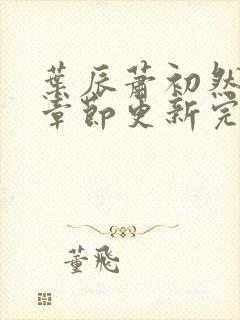 葉辰蕭初然
章節更新完
董飛